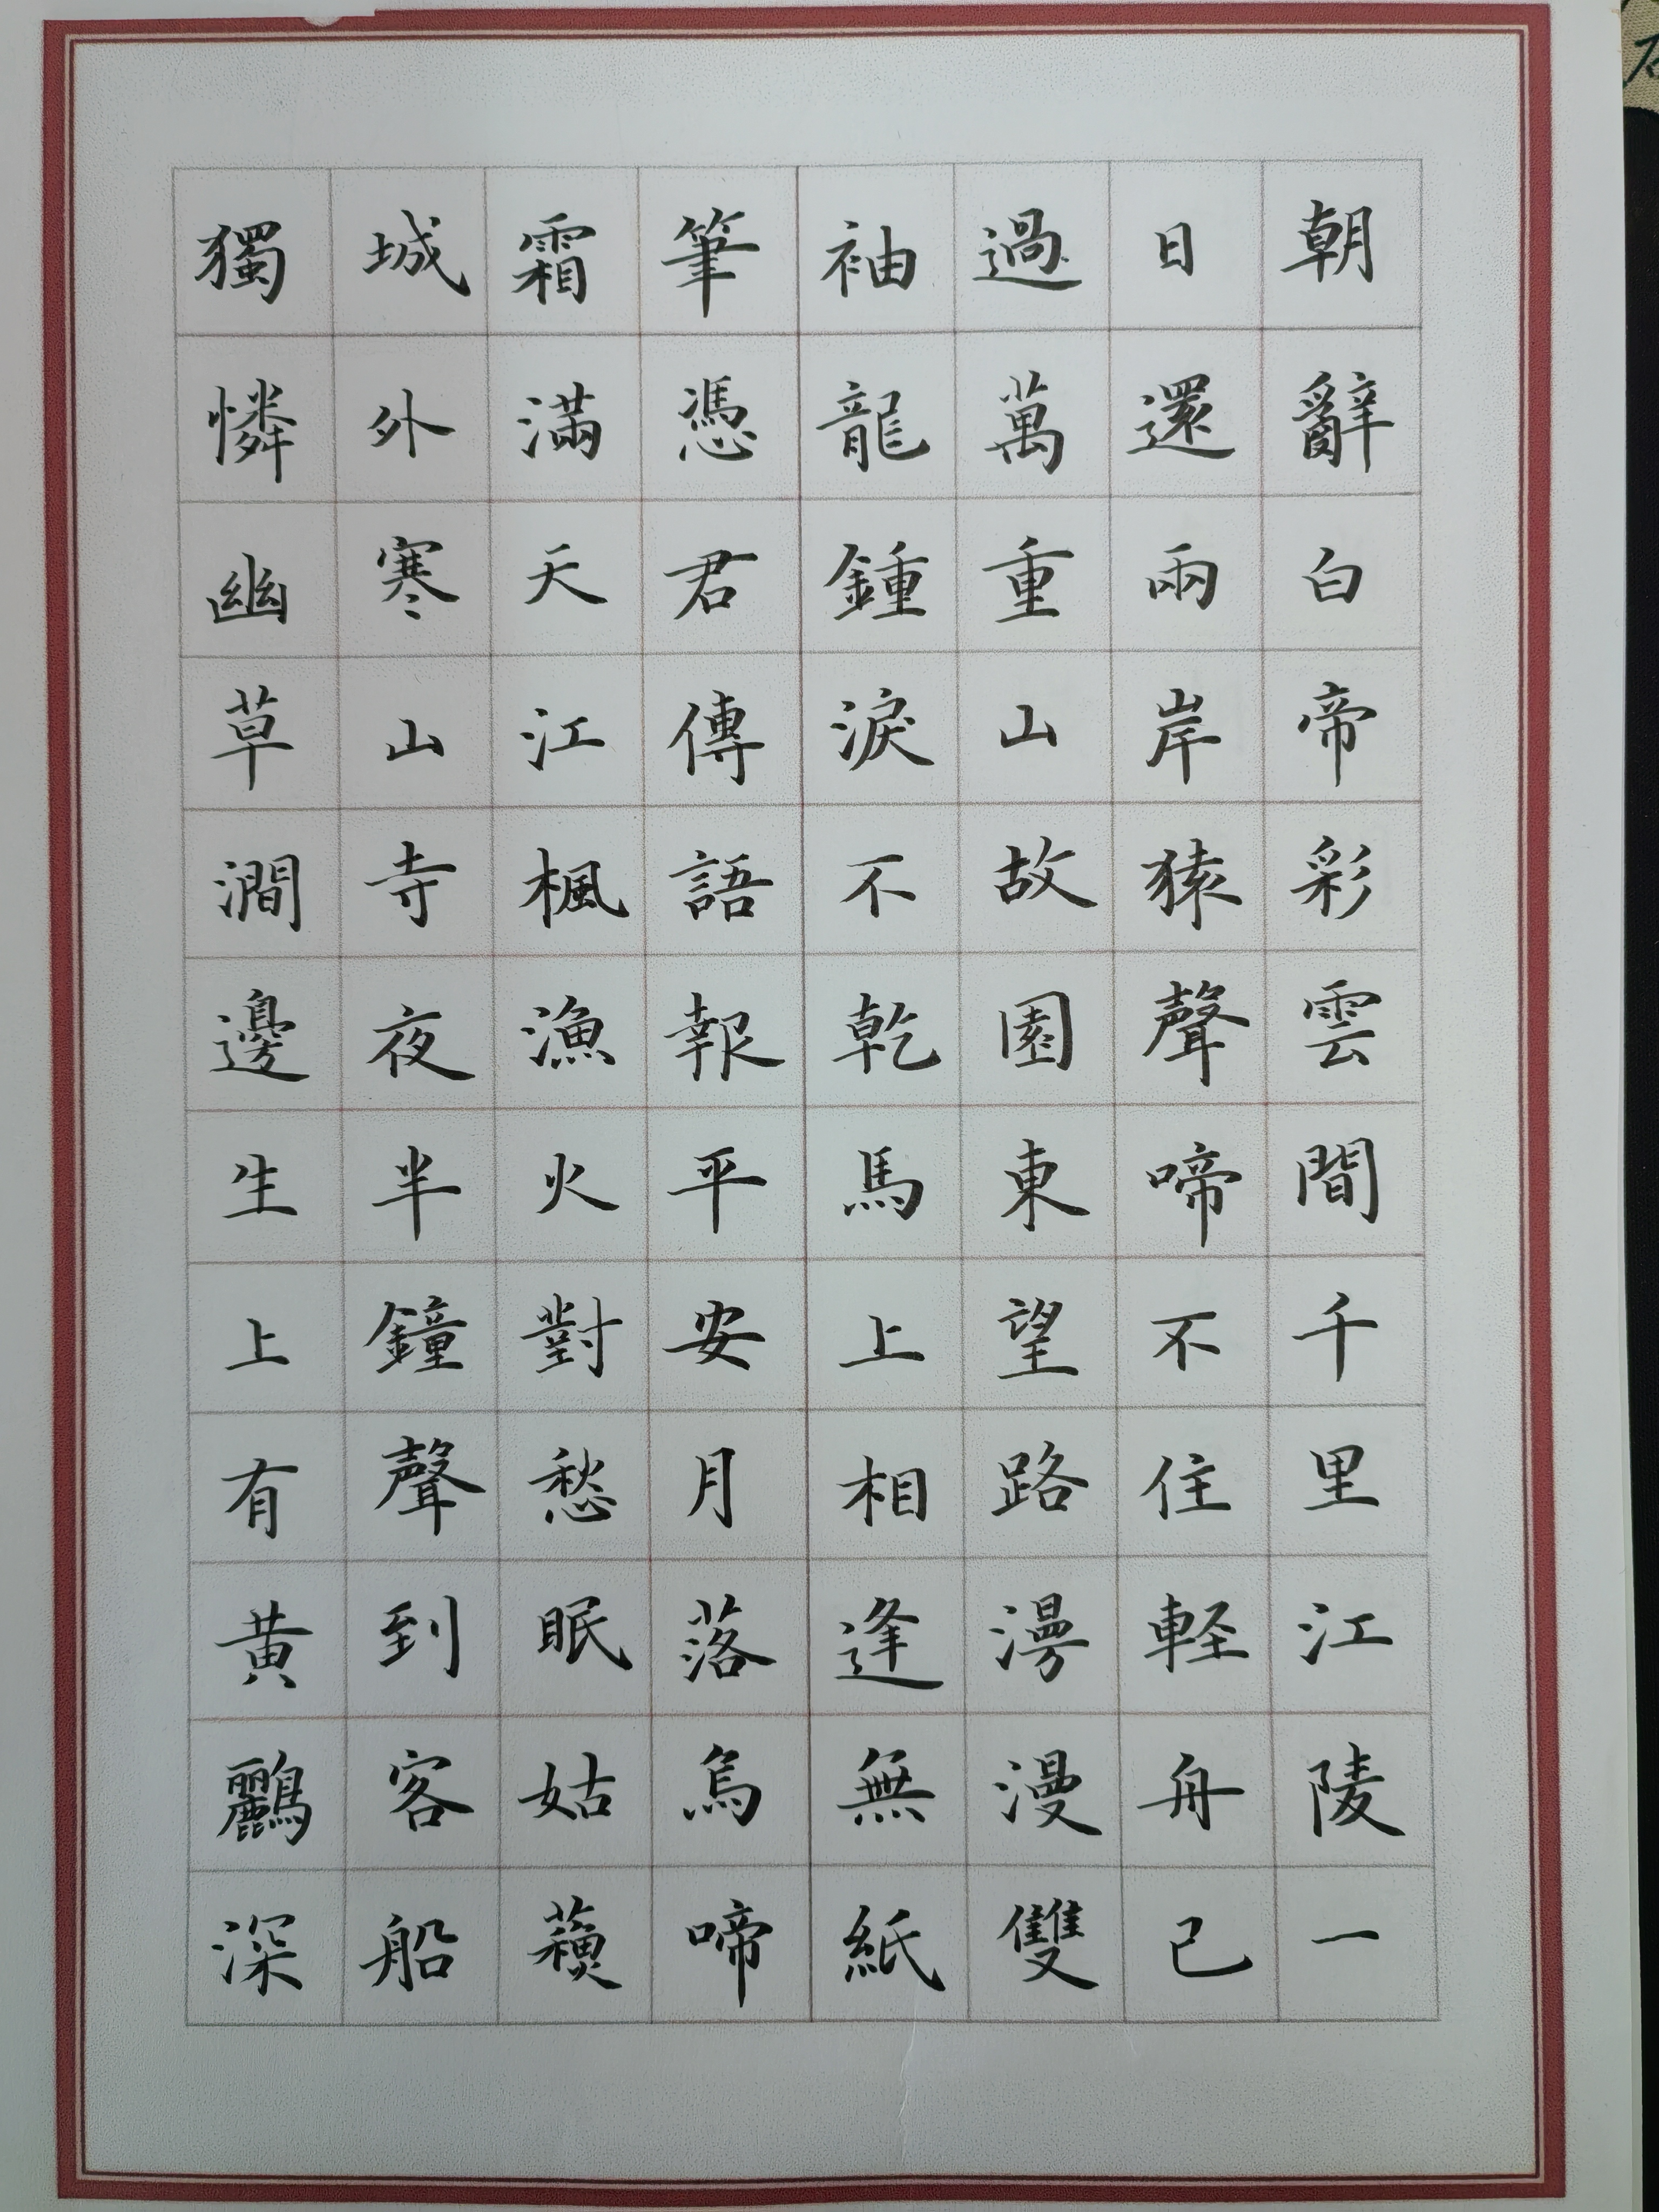 朝辭白帝彩雲間千里江陵一
日還兩岸猿聲啼不住軽舟已
過萬重山故園東望路漫漫雙
袖龍鍾淚不乾馬上相逢無紙
筆憑君傳語報平安月落烏啼
霜滿天江楓漁火對愁眠姑蘇
城外寒山寺夜半鐘聲到客船
獨憐幽草澗邊生上有黄鸝深